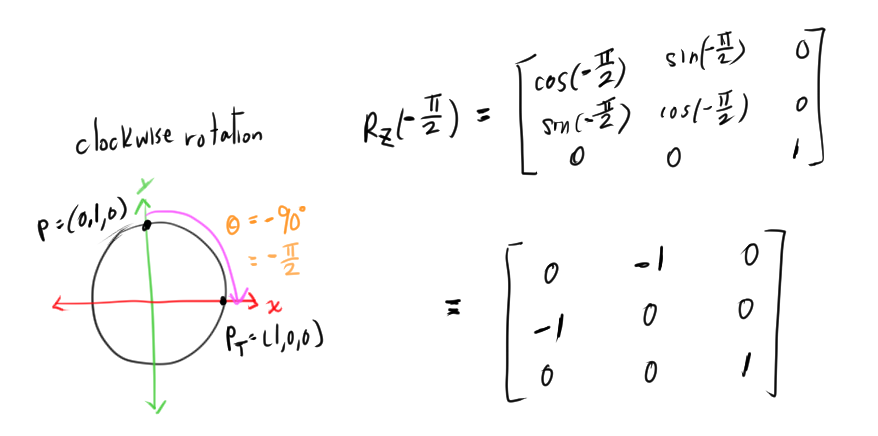 clockwise rotation
y
P=(0,1,0)
θ = -90°
= -π/2
x
P_T=(1,0,0)
R_z(-π/2) = [cos(-π/2) sin(-π/2) 0
sin(-π/2) cos(-π/2) 0
0 0 1]
= [0 -1 0
-1 0 0
0 0 1]